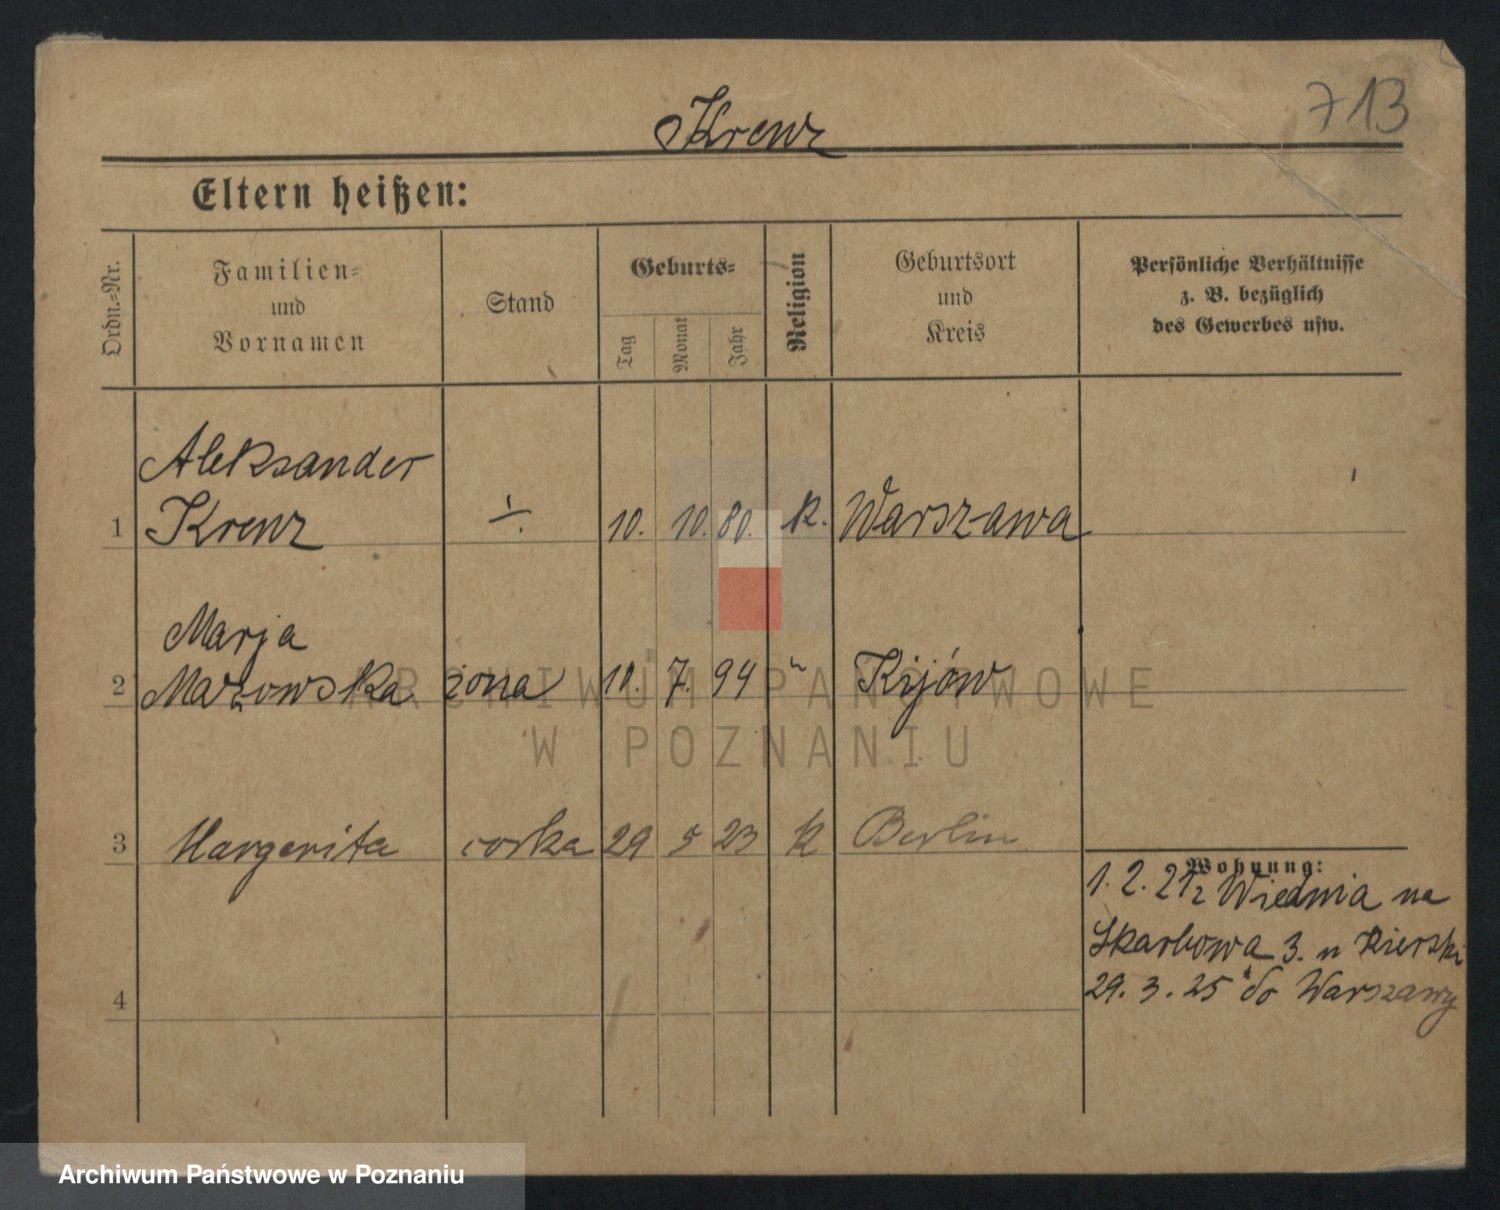 713
Krenz
Eltern heißen:
Ordn.-Nr.
Familien-
und
Vornamen
Stand
Geburts-
Tag
Monat
Jahr
Religion
Geburtsort
und
Kreis
Persönliche Verhältnisse
z. B. bezüglich
des Gewerbes usw.
Aleksander
1 Krenz ÷ 10. 10. 80. k. Warszawa
Marja
2 Mazowska żona 10. 7. 94 " Kijów
3 Margerita corka 29 5 23 k Berlin
Wohnung:
1. 2. 21 z Wiednia na
Skarbowa 3. u Kierski
29. 3. 25 do Warszawy
4
ARCHIWUM PAŃSTWOWE
W POZNANIU
Archiwum Państwowe w Poznaniu